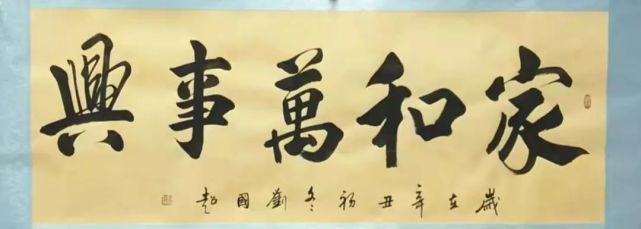 家和萬事興
歲在辛丑初冬劉國起